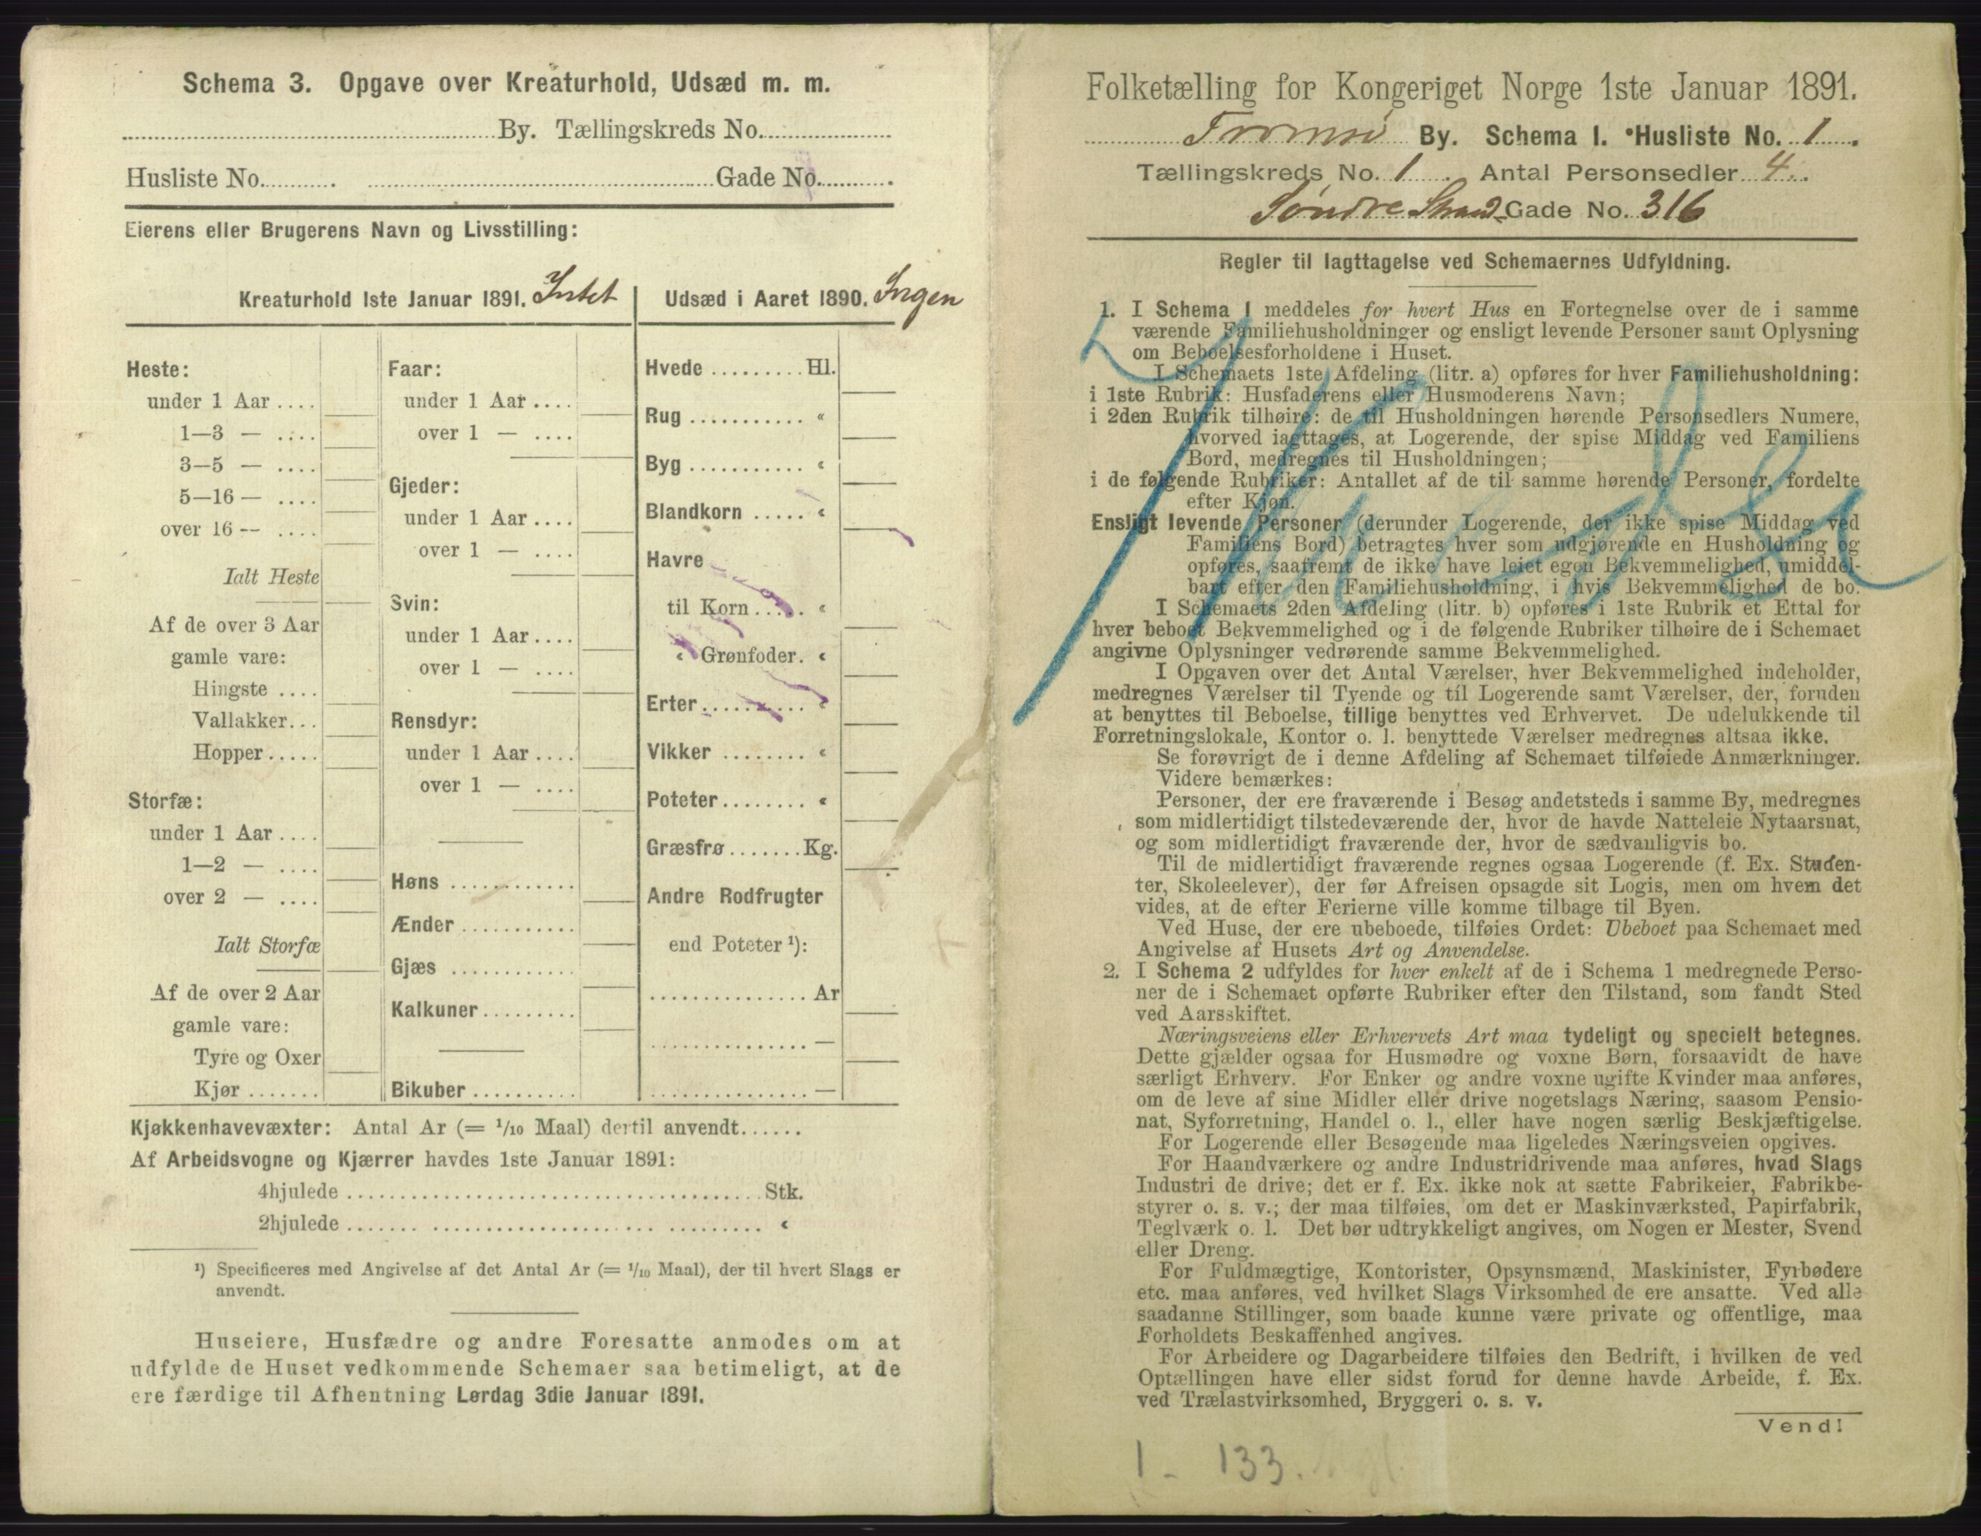 Schema 3. Opgave over Kreaturhold, Udsæd m. m.
By. Tællingskreds No.
Husliste No. Gade No.
Eierens eller Brugerens Navn og Livsstilling:
Kreaturhold 1ste Januar 1891. Intet
Heste:
under 1 Aar
1—3 —
3—5 —
5—16 —
over 16 —
Ialt Heste
Af de over 3 Aar
gamle vare:
Hingste
Vallakker
Hopper
Storfæ:
under 1 Aar
1—2 —
over 2 —
Ialt Storfæ
Af de over 2 Aar
gamle vare:
Tyre og Oxer
Kjør
Faar:
under 1 Aar
over 1 —
Gjeder:
under 1 Aar
over 1 —
Svin:
under 1 Aar
over 1 —
Rensdyr:
under 1 Aar
over 1 —
Høns
Ænder
Gjæs
Kalkuner
Bikuber
Udsæd i Aaret 1890. Ingen
Hvede Hl.
Rug «
Byg «
Blandkorn «
Havre
til Korn «
« Grønfoder. «
Erter «
Vikker «
Poteter «
Græsfrø Kg.
Andre Rodfrugter
end Poteter ¹):
Ar
—
—
Kjøkkenhavevæxter: Antal Ar (= 1/10 Maal) dertil anvendt
Af Arbeidsvogne og Kjærrer havdes 1ste Januar 1891:
4hjulede Stk.
2hjulede «
¹) Specificeres med Angivelse af det Antal Ar (= 1/10 Maal), der til hvert Slags er
anvendt.
Huseiere, Husfædre og andre Foresatte anmodes om at
udfylde de Huset vedkommende Schemaer saa betimeligt, at de
ere færdige til Afhentning Lørdag 3die Januar 1891.
Folketælling for Kongeriget Norge 1ste Januar 1891.
Tromsø By. Schema I. Husliste No. 1
Tællingskreds No. 1. Antal Personsedler 4.
Søndre Strand-Gade No. 316
Regler til Iagttagelse ved Schemaernes Udfyldning.
1. I Schema 1 meddeles for hvert Hus en Fortegnelse over de i samme
værende Familiehusholdninger og ensligt levende Personer samt Oplysning
om Beboelsesforholdene i Huset.
I Schemaets 1ste Afdeling (litr. a) opføres for hver Familiehusholdning:
i 1ste Rubrik: Husfaderens eller Husmoderens Navn;
i 2den Rubrik tilhøire: de til Husholdningen hørende Personsedlers Numere,
hvorved iagttages, at Logerende, der spise Middag ved Familiens
Bord, medregnes til Husholdningen;
i de følgende Rubriker: Antallet af de til samme hørende Personer, fordelte
efter Kjøn.
Ensligt levende Personer (derunder Logerende, der ikke spise Middag ved
Familiens Bord) betragtes hver som udgjørende en Husholdning og
opføres, saafremt de ikke have leiet egen Bekvemmelighed, umiddel-
bart efter den Familiehusholdning, i hvis Bekvemmelighed de bo.
I Schemaets 2den Afdeling (litr. b) opføres i 1ste Rubrik et Ettal for
hver beboet Bekvemmelighed og i de følgende Rubriker tilhøire de i Schemaet
angivne Oplysninger vedrørende samme Bekvemmelighed.
I Opgaven over det Antal Værelser, hver Bekvemmelighed indeholder,
medregnes Værelser til Tyende og til Logerende samt Værelser, der, foruden
at benyttes til Beboelse, tillige benyttes ved Erhvervet. De udelukkende til
Forretningslokale, Kontor o. l. benyttede Værelser medregnes altsaa ikke.
Se forøvrigt de i denne Afdeling af Schemaet tilføiede Anmærkninger.
Videre bemærkes:
Personer, der ere fraværende i Besøg andetsteds i samme By, medregnes
som midlertidigt tilstedeværende der, hvor de havde Natteleie Nytaarsnat,
og som midlertidigt fraværende der, hvor de sædvanligvis bo.
Til de midlertidigt fraværende regnes ogsaa Logerende (f. Ex. Studen-
ter, Skoleelever), der før Afreisen opsagde sit Logis, men om hvem det
vides, at de efter Ferierne ville komme tilbage til Byen.
Ved Huse, der ere ubeboede, tilføies Ordet: Ubeboet paa Schemaet med
Angivelse af Husets Art og Anvendelse.
2. I Schema 2 udfyldes for hver enkelt af de i Schema 1 medregnede Perso-
ner de i Schemaet opførte Rubriker efter den Tilstand, som fandt Sted
ved Aarsskiftet.
Næringsveiens eller Erhvervets Art maa tydeligt og specielt betegnes.
Dette gjælder ogsaa for Husmødre og voxne Børn, forsaavidt de have
særligt Erhverv. For Enker og andre voxne ugifte Kvinder maa anføres,
om de leve af sine Midler eller drive nogetslags Næring, saasom Pensio-
nat, Syforretning, Handel o. l., eller have nogen særlig Beskjæftigelse.
For Logerende eller Besøgende maa ligeledes Næringsveien opgives.
For Haandværkere og andre Industridrivende maa anføres, hvad Slags
Industri de drive; det er f. Ex. ikke nok at sætte Fabrikeier, Fabrikbe-
styrer o. s. v.; der maa tilføies, om det er Maskinværksted, Papirfabrik,
Teglværk o. l. Det bør udtrykkeligt angives, om Nogen er Mester, Svend
eller Dreng.
For Fuldmægtige, Kontorister, Opsynsmænd, Maskinister, Fyrbødere
etc. maa anføres, ved hvilket Slags Virksomhed de ere ansatte. Ved alle
saadanne Stillinger, som baade kunne være private og offentlige, maa
Forholdets Beskaffenhed angives.
For Arbeidere og Dagarbeidere tilføies den Bedrift, i hvilken de ved
Optællingen have eller sidst forud for denne havde Arbeide, f. Ex.
ved Trælastvirksomhed, Bryggeri o. s. v.
Vend!
1 - 133.